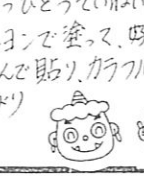 っひとつていねい
ヨンで塗って、
んで貼り、カラフル
り